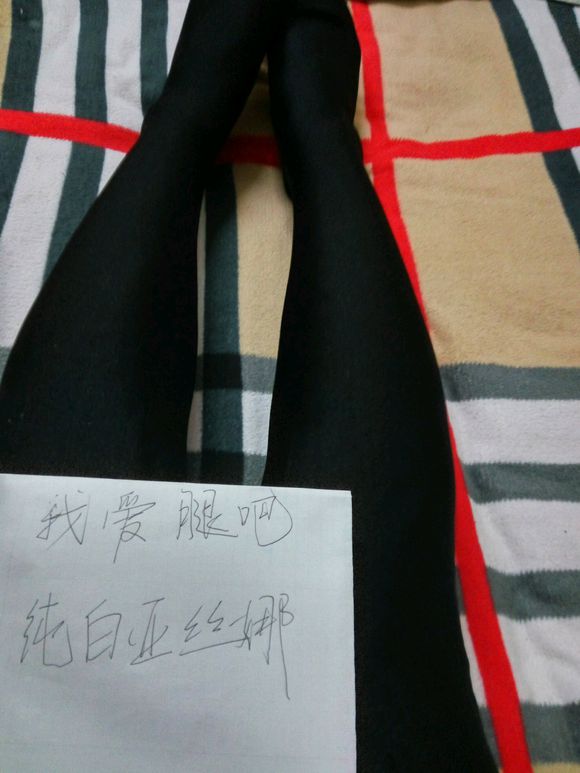 我爱腿吧
纯白亚丝娜